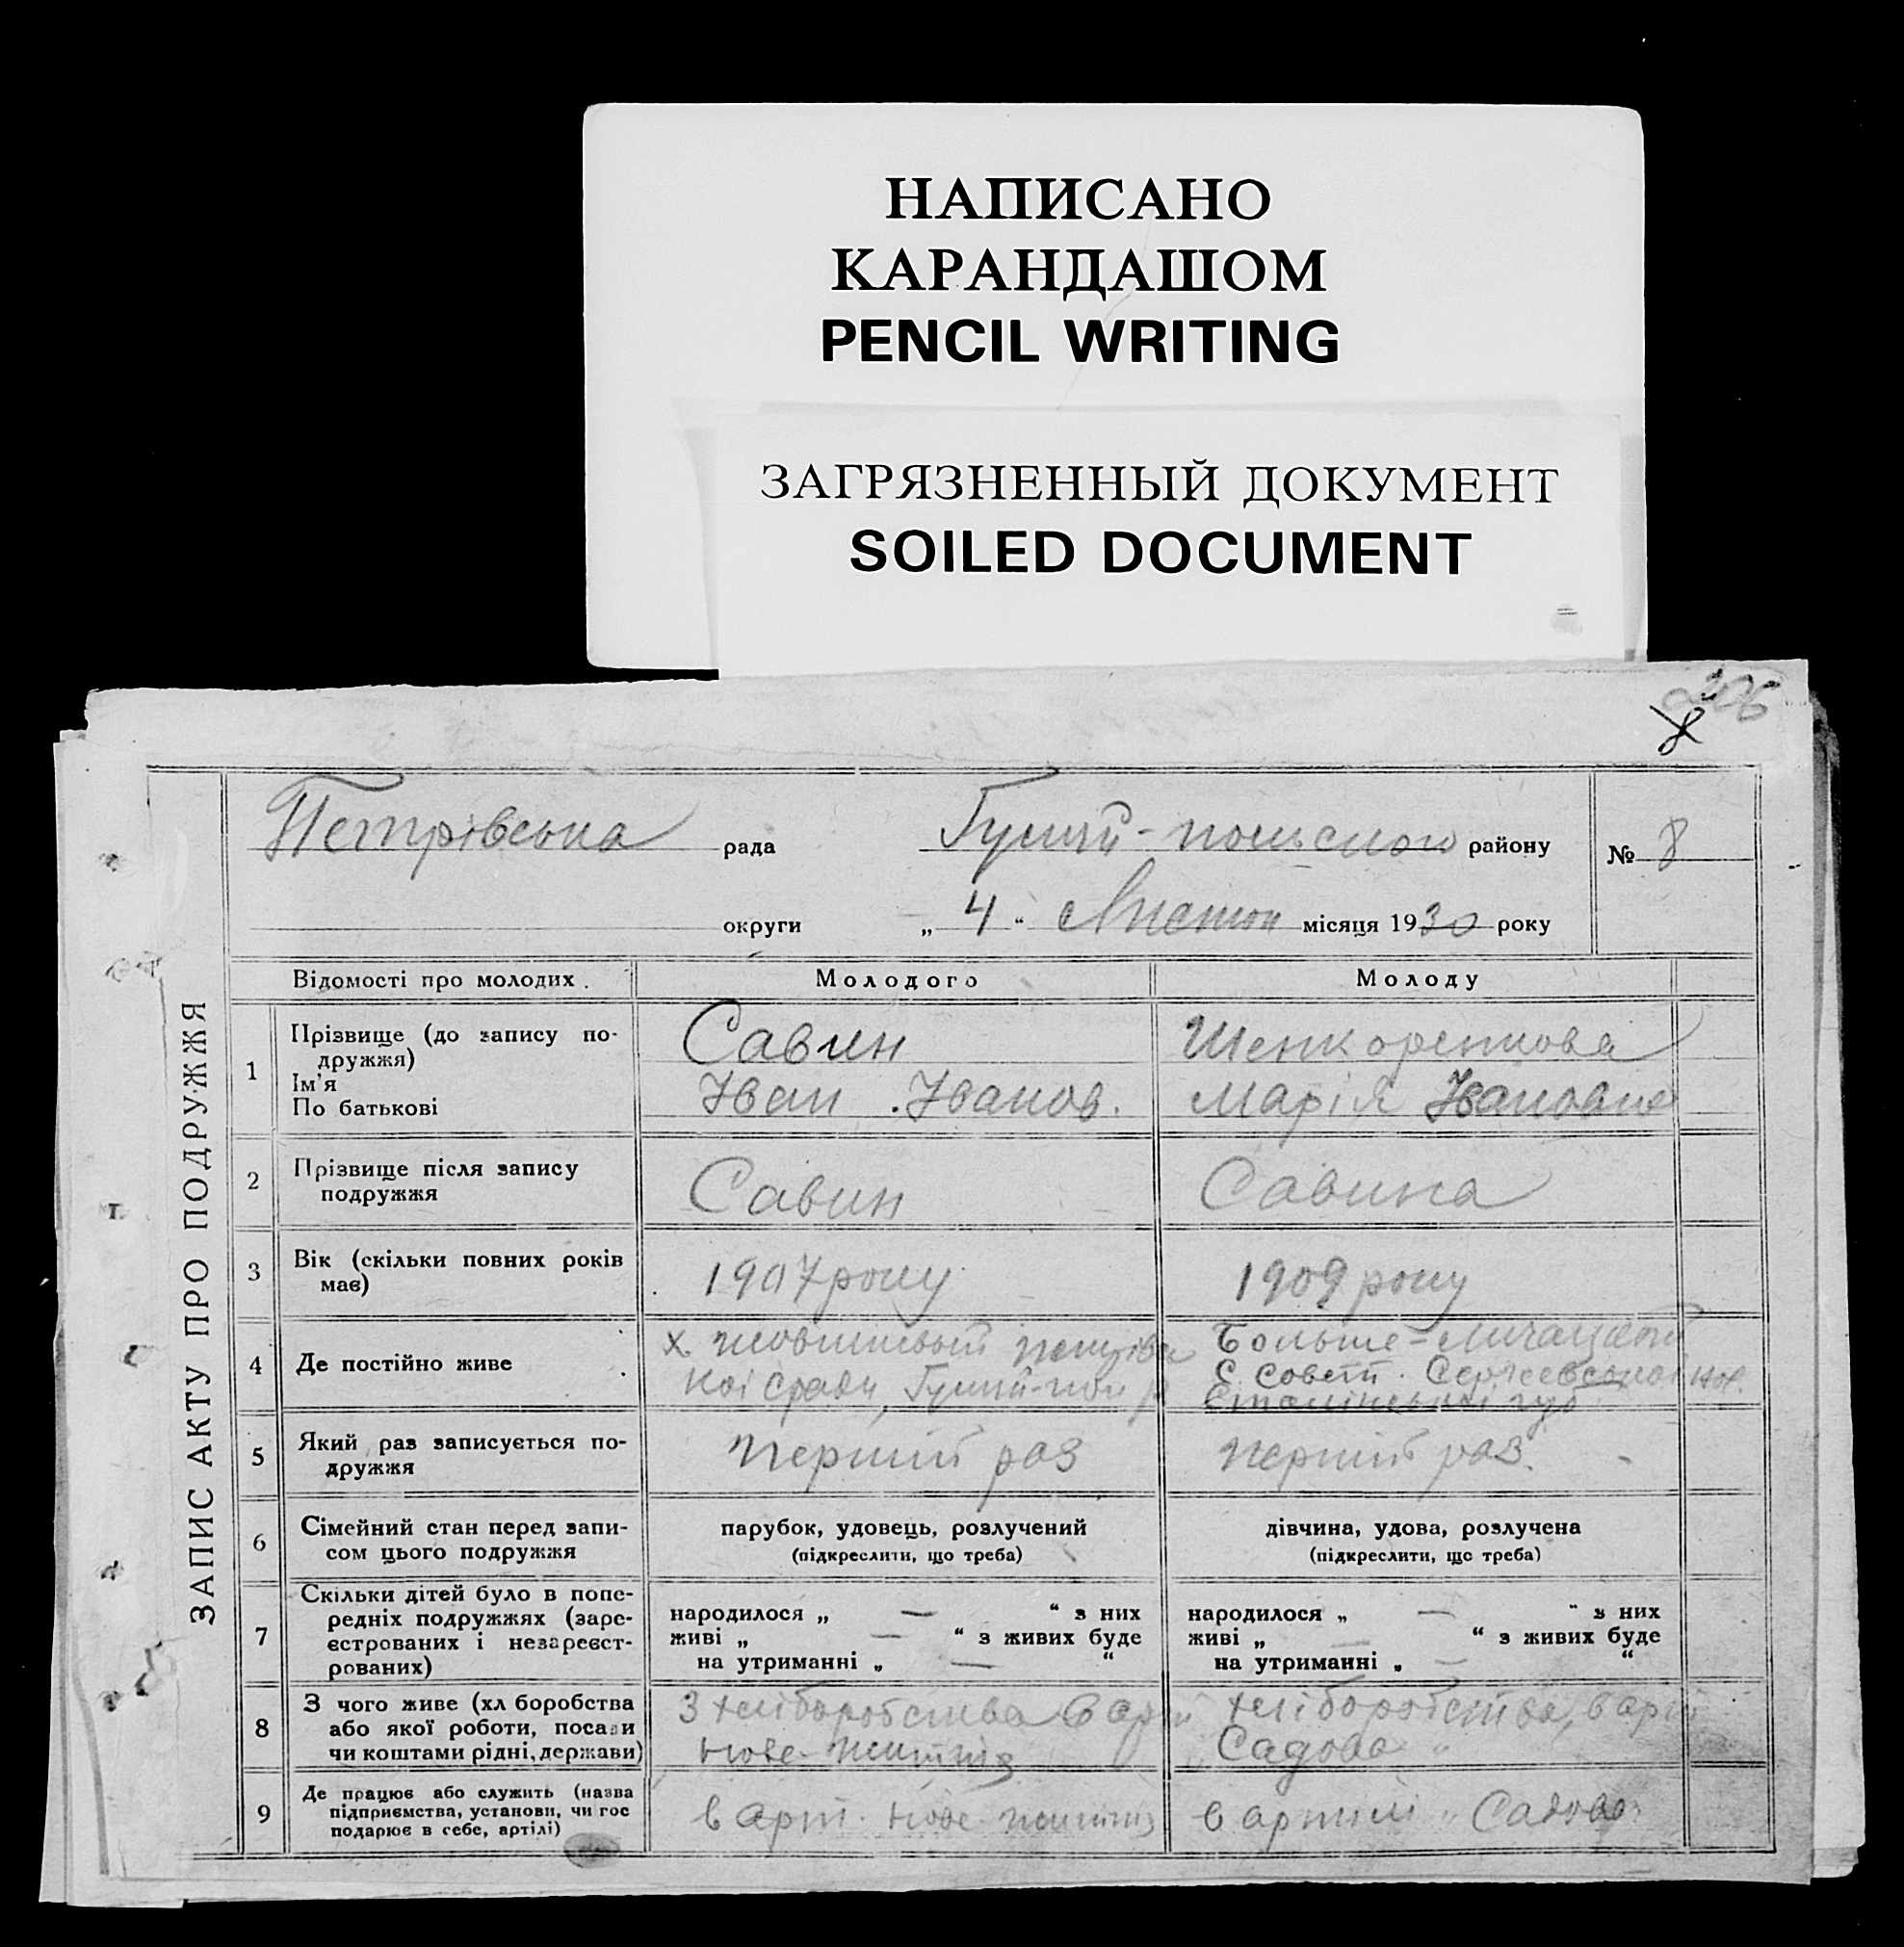 НАПИСАНО
КАРАНДАШОМ
PENCIL WRITING
ЗАГРЯЗНЕННЫЙ ДОКУМЕНТ
SOILED DOCUMENT
ЗАПИС АКТУ ПРО ПОДРУЖЖЯ
Петрівська рада району № 8
округи „ 4 “ Листоп місяця 1930 року
Відомості про молодих. Молодого Молоду
1 Прізвище (до запису по-
дружжя)
Ім'я
По батькові
Савин
Іван Іванов.
Марія Івановна
2 Прізвище після запису
подружжя
Савин Савина
3 Вік (скільки повних років
має)
1907 року 1909 року
4 Де постійно живе
х.
5 Який раз записується по-
дружжя
перший раз перший раз.
6 Сімейний стан перед запи-
сом цього подружжя
парубок, удовець, розлучений
(підкреслити, що треба)
дівчина, удова, розлучена
(підкреслити, що треба)
7 Скільки дітей було в попе-
редніх подружжях (заре-
єстрованих і незареєст-
рованих)
народилося „ — “ з них
живі „ — “ з живих буде
на утриманні „ — “
народилося „ — “ з них
живі „ — “ з живих буде
на утриманні „ — “
8 З чого живе (хл боробства
або якої роботи, посади
чи коштами рідні, держави)
З хліборобства в арт
Нове-життя
хліборобства, в арт
„Садова“
9 Де працює або служить (назва
підприємства, установи, чи гос
подарює в себе, артілі)
в арт. Нове життя
в артілі „Садова“